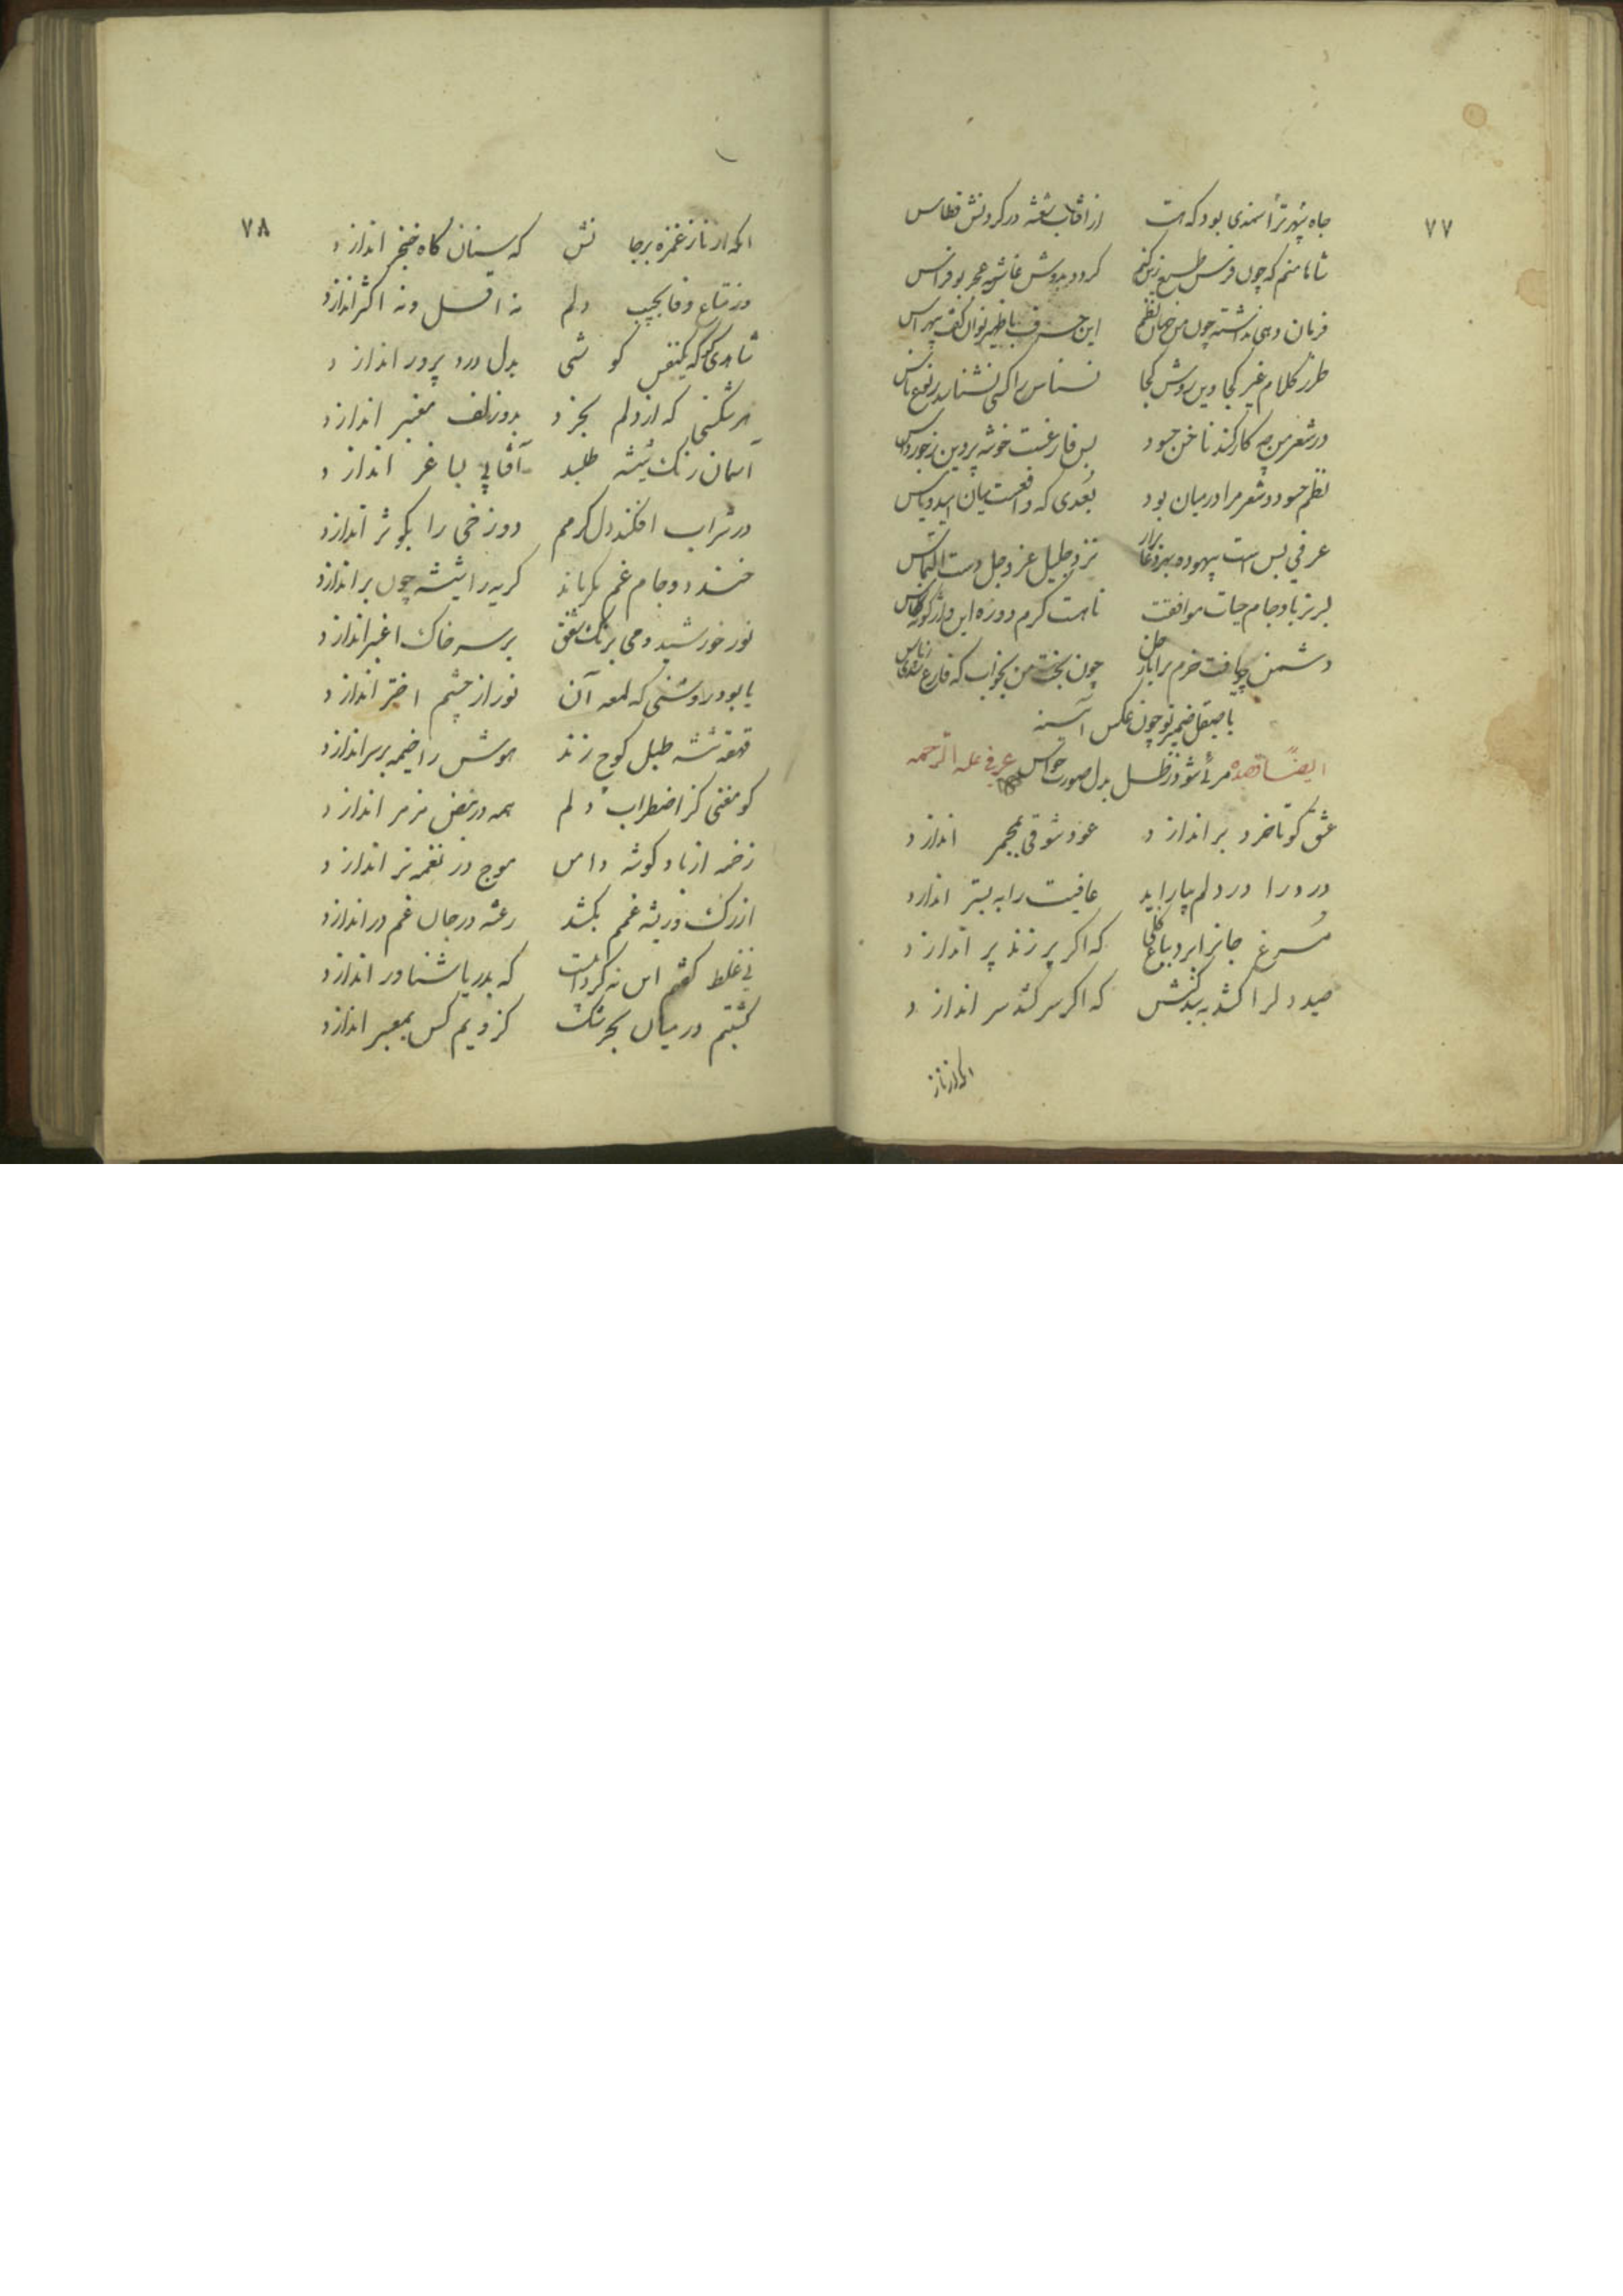 ۷۷
جاه سپهر ترا سمندی بود که هست از آفتاب شعشه در کردنش قطاس
شاها منم که چون فرس طبع زین کنم کردد بدوش غاشیه بو فراس
فرمان دهی نداشته چون من جهان نظم این حرف با ظهیر توان گفت بی هراس
طرز کلام غیر کجا وین روش کجا نسناس را کسی نشناسد ز نوع ناس
در شعر من چه کار کند ناخن حسود بس فارغست خوشه پروین ز جور داس
نظم حسود و شعر مرا در میان بود بعدی که واقعست میان امید و یاس
عرفی بس است بیهوده دعا برار نزد جلیل عز و جل دست التماس
لبریز باد جام حیات موافقت تا هست کرم دوره این واژگونه طاس
دشمن چو یافت خرم چون بخت من بخواب که فارع
با صیقل ضمیر تو چون عکس آینه
ایضا مرئی شود ز ظل بدل صورت حواس عرفی علیه الرحمه
عشق کو تا خرد بر اندازد عود شوقی بمجمر اندازد
درد را در دلم بیاراید عافیت را به بستر اندازد
مرغ جانرا برد بباغی که اکر پر زند پر اندازد
صید دلرا کشد به بندکش که اکر سر کشد سر اندازد
انکه از ناز
۷۸
انکه از ناز غمزه بر جا نش که سنان کاه خنجر اندازد
وز متاع وفا بجیب دلم نه اقل و نه اکثر اندازد
شاهدی کو که یکنفس کو شی بدل درد پرور اندازد
هر شکستی که از دلم بخزد بدو زلف معنبر اندازد
آسمان رنک شیشه طلبد آفتابی بساغر اندازد
در شراب افکند دل کرمم دوزخی را بکوثر اندازد
خندد و جام غم بکریاند کریه را شیشه چون بر اندازد
نور خورشید و می برنک شفق بر سر خاک اغبر اندازد
یا بود روشنی که لمعه آن نور از چشم اختر اندازد
قهقه شیشه طبل کوچ زند هوش را خیمه بر سر اندازد
کو مغنی کز اضطراب دلم همه در نبض مزمر اندازد
زخمه از باد کوشه دامن موج در نغمه تر اندازد
از رک و ریشه غم بکشد رعشه در جان غم در اندازد
نی غلط کفتم این نه کردابست که بدریا شناور اندازد
کشتیم در میان بحر شک کز ویم کس بمعبر اندازد